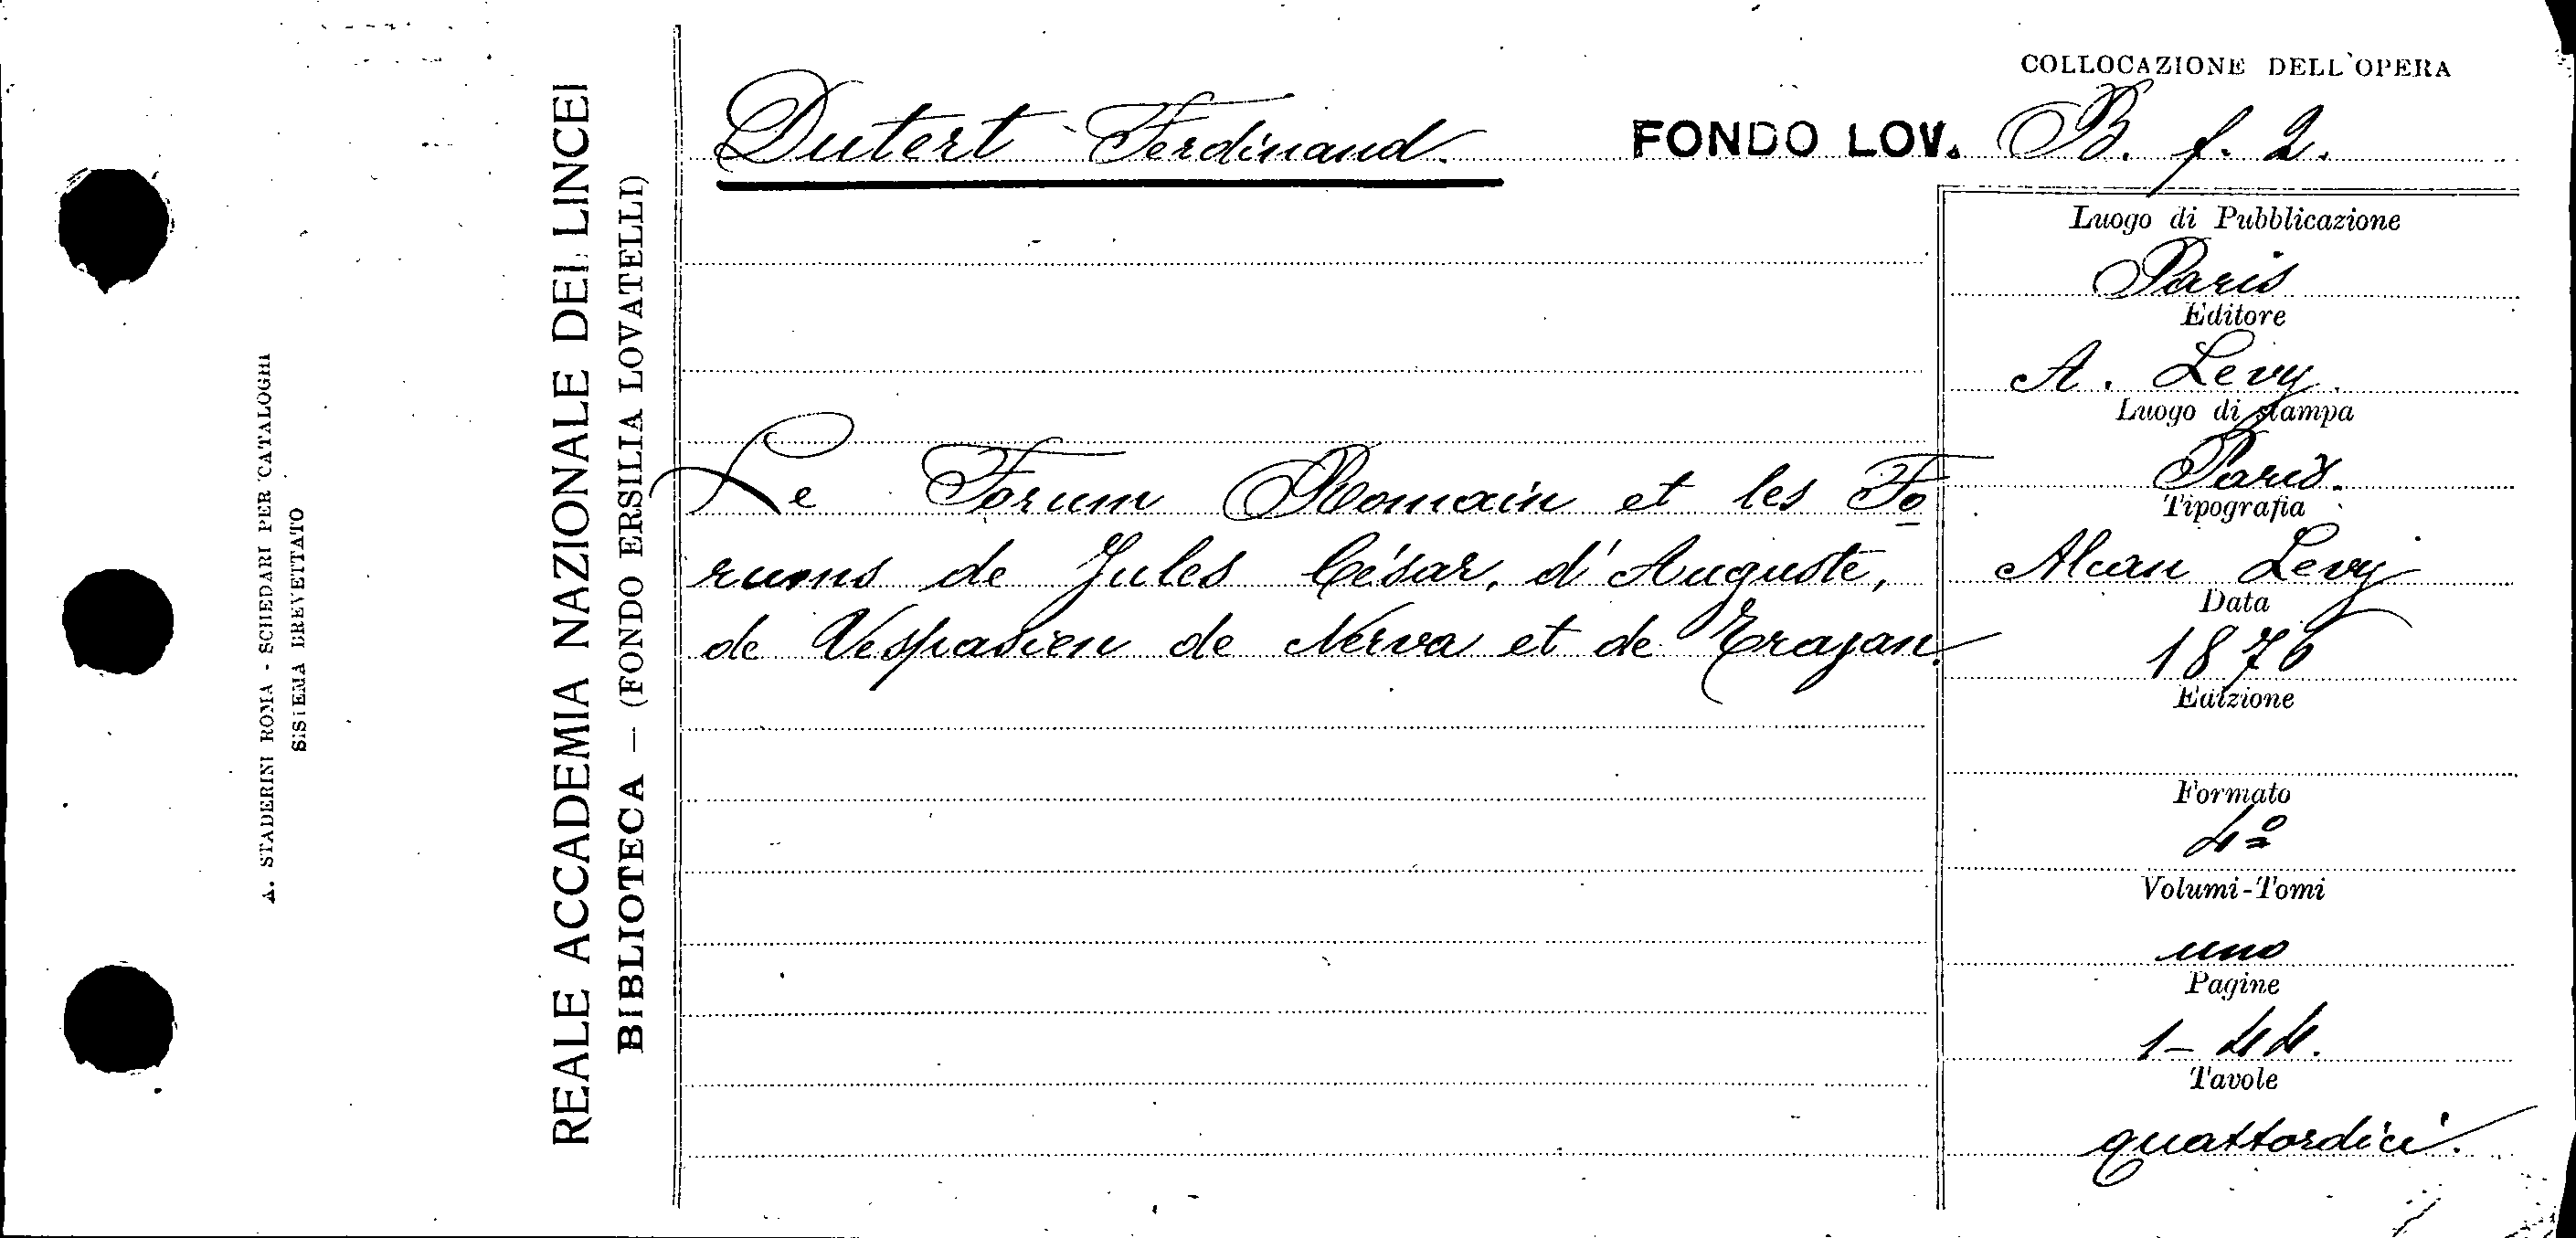 COLLOCAZIONE DELL'OPERA
Dutert Ferdinand. FONDO LOV. B. f. 2.
Le Forum Romain et les Fo
rums de Jules César, d'Auguste,
de Vespasien de Nerva et de Trajan.
Luogo di Pubblicazione
Paris
Editore
A. Levy.
Luogo di stampa
Paris.
Tipografia
Alcan Levy
Data
1876
Edizione
Formato
4º
Volumi-Tomi
uno
Pagine
1-44.
Tavole
quattordici.
REALE ACCADEMIA NAZIONALE DEI LINCEI
BIBLIOTECA — (FONDO ERSILIA LOVATELLI)
A. STADERINI ROMA - SCHEDARI PER CATALOGHI
SISTEMA BREVETTATO